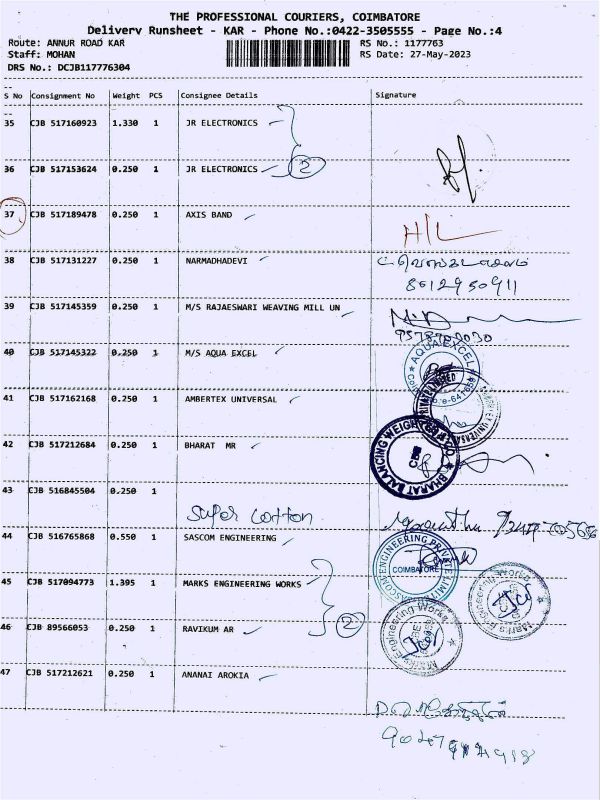 THE PROFESSIONAL COURIERS, COIMBATORE
Delivery Runsheet - KAR - Phone No.:0422-3505555 - Page No.:4
Route: ANNUR ROAD KAR RS No.: 1177763
Staff: MOHAN RS Date: 27-May-2023
DRS No.: DCJB117776304
S No Consignment No Weight PCS Consignee Details Signature
35 CJB 517160923 1.330 1 JR ELECTRONICS
36 CJB 517153624 0.250 1 JR ELECTRONICS 2
37 CJB 517189478 0.250 1 AXIS BAND
38 CJB 517131227 0.250 1 NARMADHADEVI
8012950911
39 CJB 517145359 0.250 1 M/S RAJAESWARI WEAVING MILL UN
40 CJB 517145322 0.250 1 M/S AQUA EXCEL
AQUA EXCEL
41 CJB 517162168 0.250 1 AMBERTEX UNIVERSAL
PRIVATE LIMITED
42 CJB 517212684 0.250 1 BHARAT MR
BHARAT BALANCING WEIGHT
CBE
43 CJB 516845504 0.250 1
Super Cotton
44 CJB 516765868 0.550 1 SASCOM ENGINEERING
SASCOM ENGINEERING PRIVATE LIMITED
COIMBATORE
45 CJB 517094773 1.395 1 MARKS ENGINEERING WORKS
Marks Engineering Works
46 CJB 89566053 0.250 1 RAVIKUM AR 2
Marks Engineering Works
47 CJB 517212621 0.250 1 ANANAI AROKIA